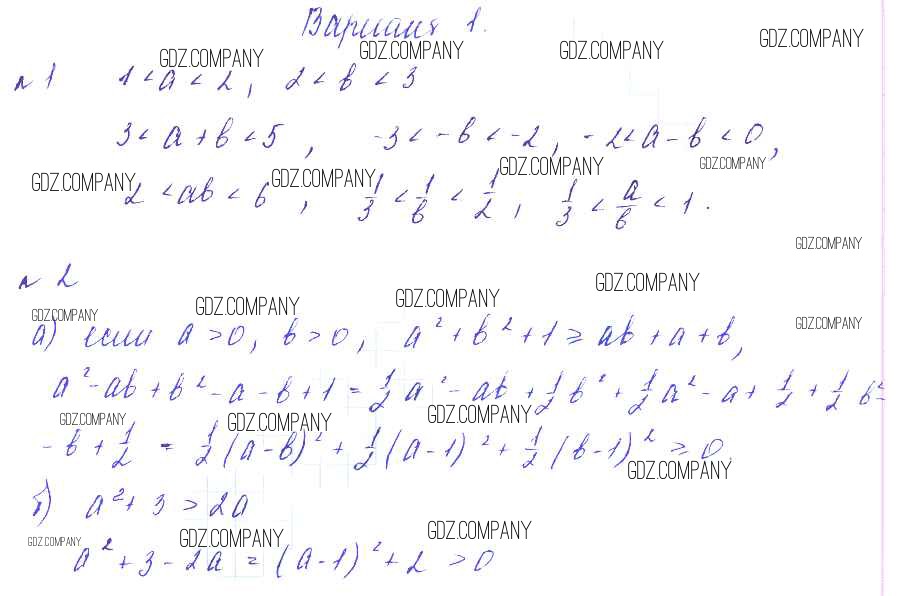 Вариант 1.
GDZ.COMPANY GDZ.COMPANY GDZ.COMPANY GDZ.COMPANY
№1 1 < a < 2, 2 < b < 3
3 < a + b < 5, -3 < -b < -2, -2 < a - b < 0,
GDZ.COMPANY GDZ.COMPANY GDZ.COMPANY GDZ.COMPANY
2 < ab < 6, 1/3 < 1/b < 1/2, 1/3 < a/b < 1.
GDZ.COMPANY
№2
GDZ.COMPANY GDZ.COMPANY GDZ.COMPANY
GDZ.COMPANY GDZ.COMPANY
а) если a > 0, b > 0, a² + b² + 1 ≥ ab + a + b,
a² - ab + b² - a - b + 1 = 1/2 a² - ab + 1/2 b² + 1/2 a² - a + 1/2 + 1/2 b² -
GDZ.COMPANY GDZ.COMPANY GDZ.COMPANY
- b + 1/2 = 1/2 (a - b)² + 1/2 (a - 1)² + 1/2 (b - 1)² ≥ 0
GDZ.COMPANY
б) a² + 3 > 2a
GDZ.COMPANY GDZ.COMPANY GDZ.COMPANY
a² + 3 - 2a = (a - 1)² + 2 > 0